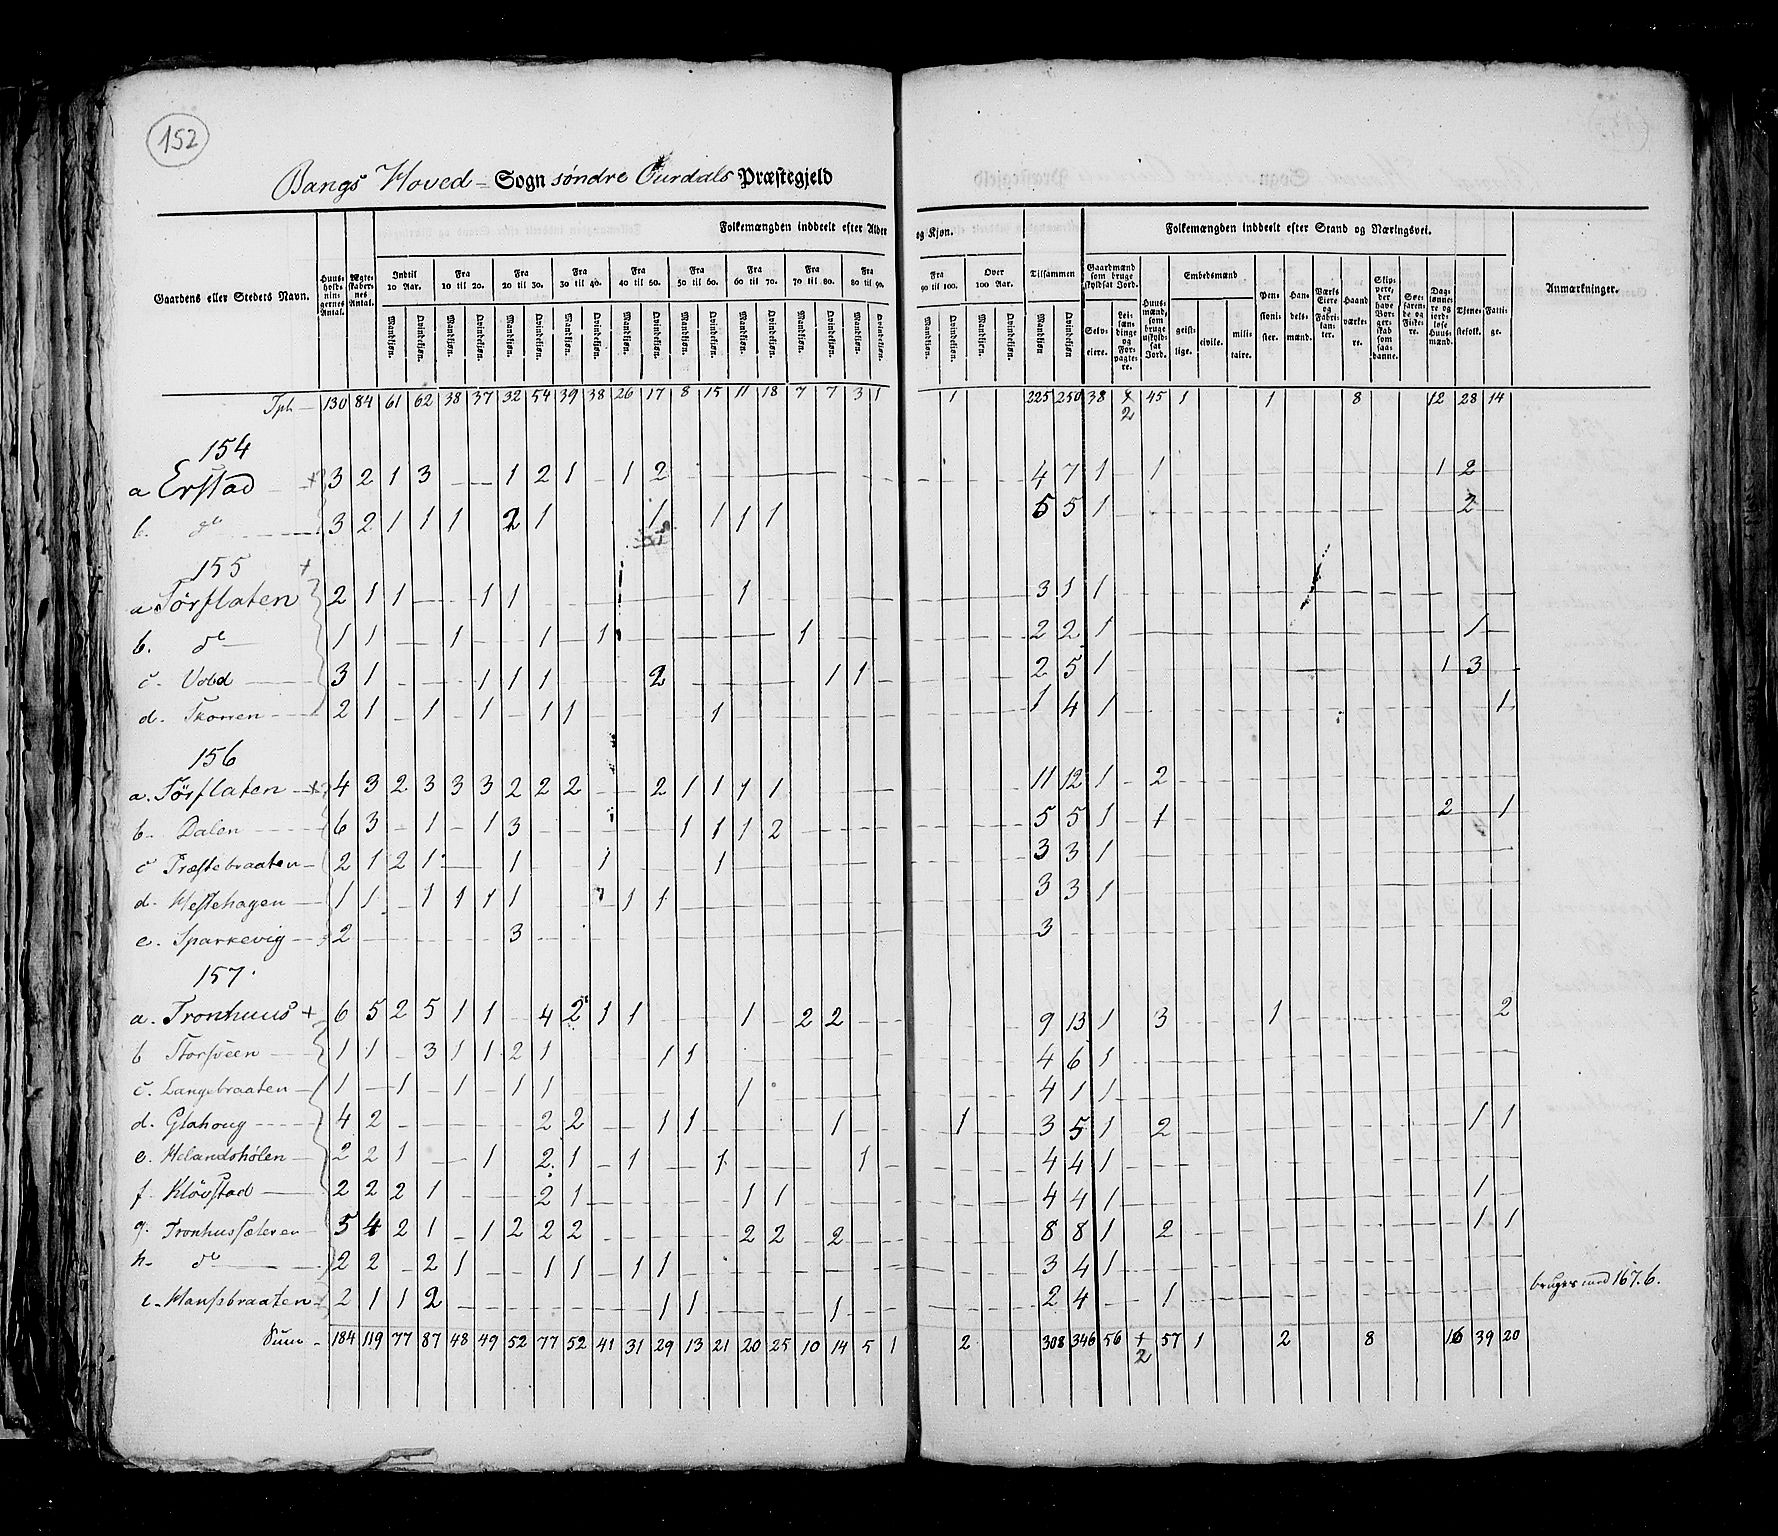 152
Bangs Hoved - Sogn søndre Ourdals Præstegjeld
Gaardens eller Stedets Navn.
Huus-holdningernes Antal.
Ægteskabernes Antal.
Folkemængden inddeelt efter Alder og Kjøn.
Indtil 10 Aar.
Fra 10 til 20.
Fra 20 til 30.
Fra 30 til 40.
Fra 40 til 50.
Fra 50 til 60.
Fra 60 til 70.
Fra 70 til 80.
Fra 80 til 90.
Fra 90 til 100.
Over 100 Aar.
Tilsammen
Mandkjøn. Qvindekjøn.
Folkemængden inddeelt efter Stand og Næringsvei.
Gaardmænd som bruge skyldsat Jord.
Selveiere.
Leilændinge og Forpagtere.
Huusmænd, som bruge uskyldsat Jord.
Embedsmænd
geistlige.
civile.
militaire.
Pensionister.
Handelsmænd.
Værks Eiere og Fabrikanter.
Haandværkere.
Skippere, der have Borgerskab som saadanne.
Søefarende og Fiskere.
Daglønnere og jordløse Huusmænd.
Tjenestefolk.
Fattige.
Anmærkninger.
Tph. 130 84 61 62 38 37 32 54 39 38 26 17 8 15 11 18 7 7 3 1 1 225 250 38 + 2 45 1 1 8 12 28 14
154
a Erstad 3 2 1 3 1 2 1 1 2 4 7 1 1 1 2
b. do 3 2 1 1 1 2 1 1 1 1 1 5 5 1 2
155
a Tørflaten 2 1 1 1 1 1 3 1 1
b. do 1 1 1 1 1 1 2 2 1 1
c. Vold 3 1 1 1 1 2 1 1 2 5 1 1 3
d. Skorren 2 1 1 1 1 1 1 1 4 1 1
156
a. Tørflaten 4 3 2 3 3 3 2 2 2 2 1 1 1 1 11 12 1 2
b. Dalen 6 3 1 1 3 1 1 1 2 5 5 1 1 2 1
c Præstebraaten 2 1 2 1 1 1 1 3 3 1
d. Hestehagen 1 1 1 1 1 1 1 1 3 3 1
e. Sparkevig 2 3 3
157.
a. Tronhuus + 6 5 2 5 1 1 4 2 1 1 1 2 2 9 13 1 3 1 2
b Storsveen 1 1 3 1 1 2 1 1 1 4 6 1
c. Langebraaten 1 1 1 1 1 1 4 1 1
d. Glahoug 4 2 2 2 1 1 1 1 3 5 1 2 1 1
e. Helandshølen 2 2 1 1 2 1 1 1 1 4 4 1
f. Kløvstad 2 2 2 1 2 1 1 1 4 4 1 1
g. Tronhussæteren 5 4 2 1 1 2 2 2 2 2 2 8 8 1 2 1 1
h. do 2 2 2 1 1 1 1 1 3 4 1
i. Hansbraaten 2 1 1 2 1 1 1 2 4 1 bruges med 167. b.
Sum 184 119 77 87 48 49 52 77 52 41 31 29 13 21 20 25 10 14 5 1 2 308 346 56 + 2 57 1 2 8 16 39 20